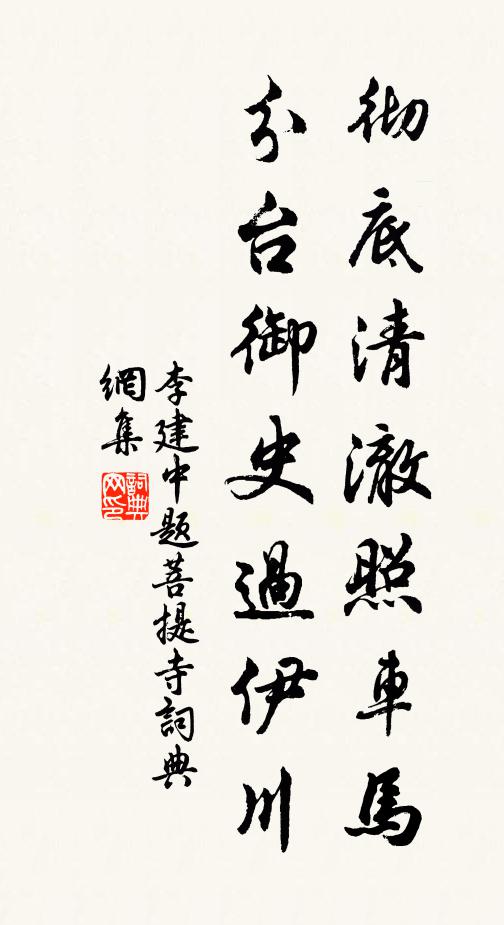 彻底清澈照車馬
分台御史過伊川
李建中題菩提寺詞典
網集
詞典
网印